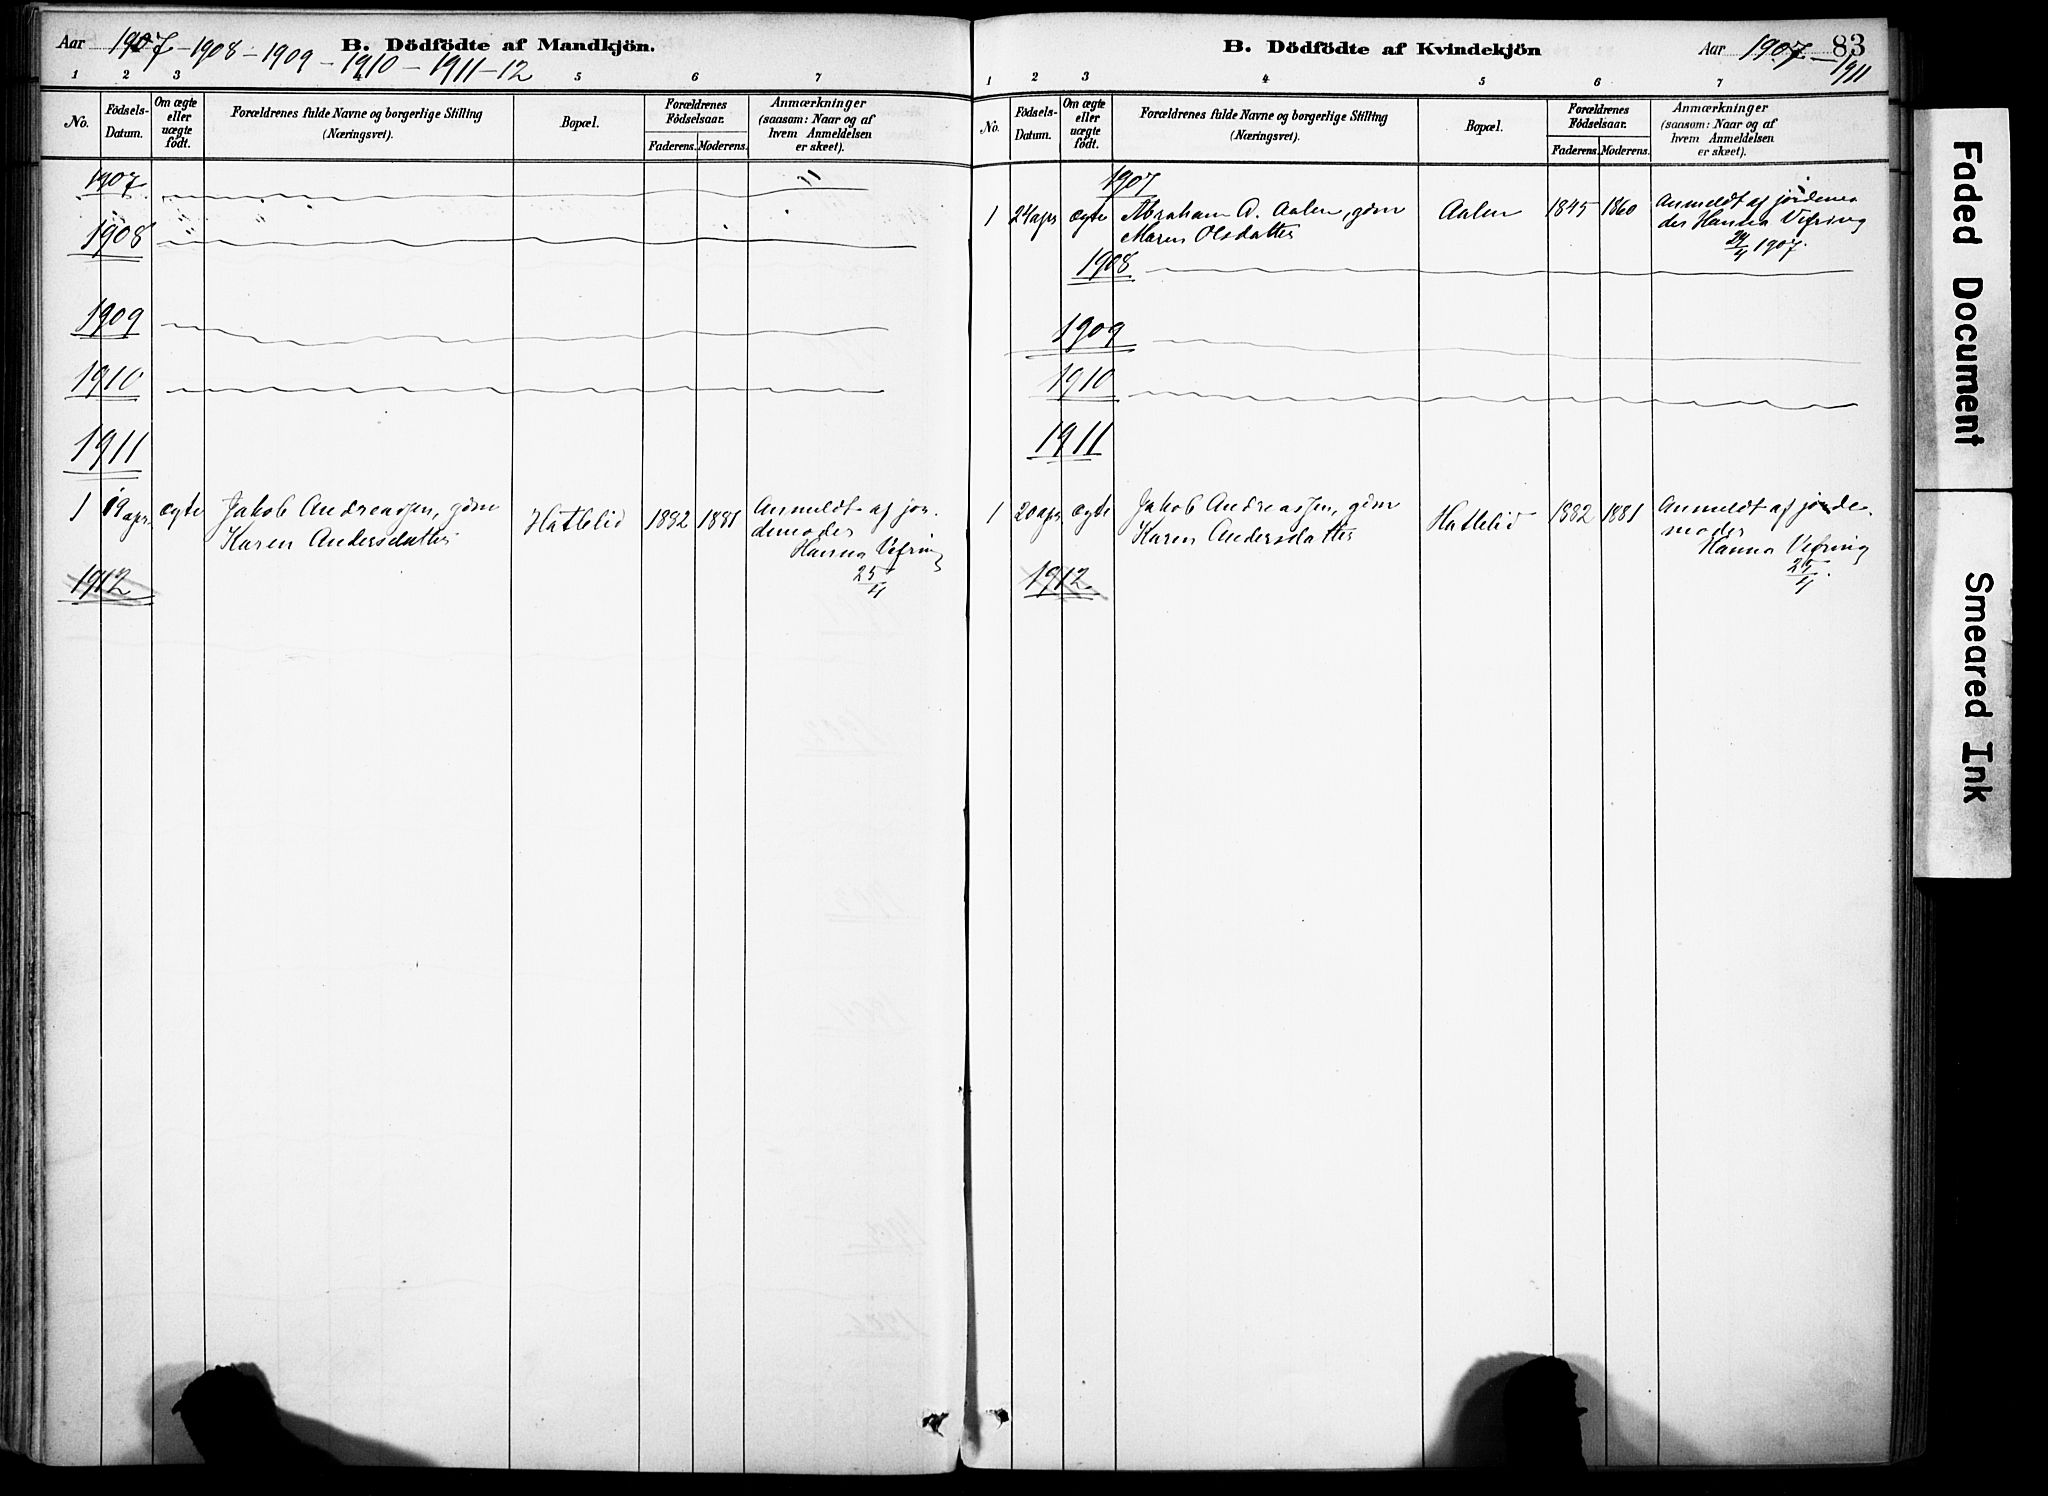 Aar 1907 - 1908 - 1909 - 1910 - 1911 - 12
B. Dödfödte af Mandkjön.
1 2 3 4 5 6 7
No.
Födsels-Datum.
Om ægte eller uægte født.
Forældrenes fulde Navne og borgerlige Stilling
(Næringsvei).
Bopæl.
Forældrenes Födselsaar.
Faderens. Moderens.
Anmærkninger
(saasom: Naar og af
hvem Anmeldelsen
er skeet).
1907
1908
1909
1910
1911
1 19 apr. ægte Jakob Andreassen, gdm Hatlelid 1882 1881 Anmeldt af jor-
Karen Andersdatter demoder
Hanna Vefring
25/4
1912
B. Dödfödte af Kvindekjön
Aar 1907 - 1911
83
1 2 3 4 5 6 7
No.
Födsels-Datum.
Om ægte eller uægte födt.
Forældrenes fulde Navne og borgerlige Stilling
(Næringsvei).
Bopæl.
Forældrenes Födselsaar.
Faderens. Moderens.
Anmærkninger
(saasom: Naar og af
hvem Anmeldelsen
er skeet).
1907
1 24 apr ægte Abraham A. Aalen, gdm Aalen 1845 1860 Anmeldt af jordemo
Maren Olsdatter der Hanna Vefring
24/4 1907.
1908
1909
1910
1911
1 20 apr ægte Jakob Andreassen, gdm Hatlelid 1882 1881 Anmeldt af jorde-
Karen Andersdatter moder
Hanna Vefring
25/4.
1912.
Faded Document
Smeared Ink